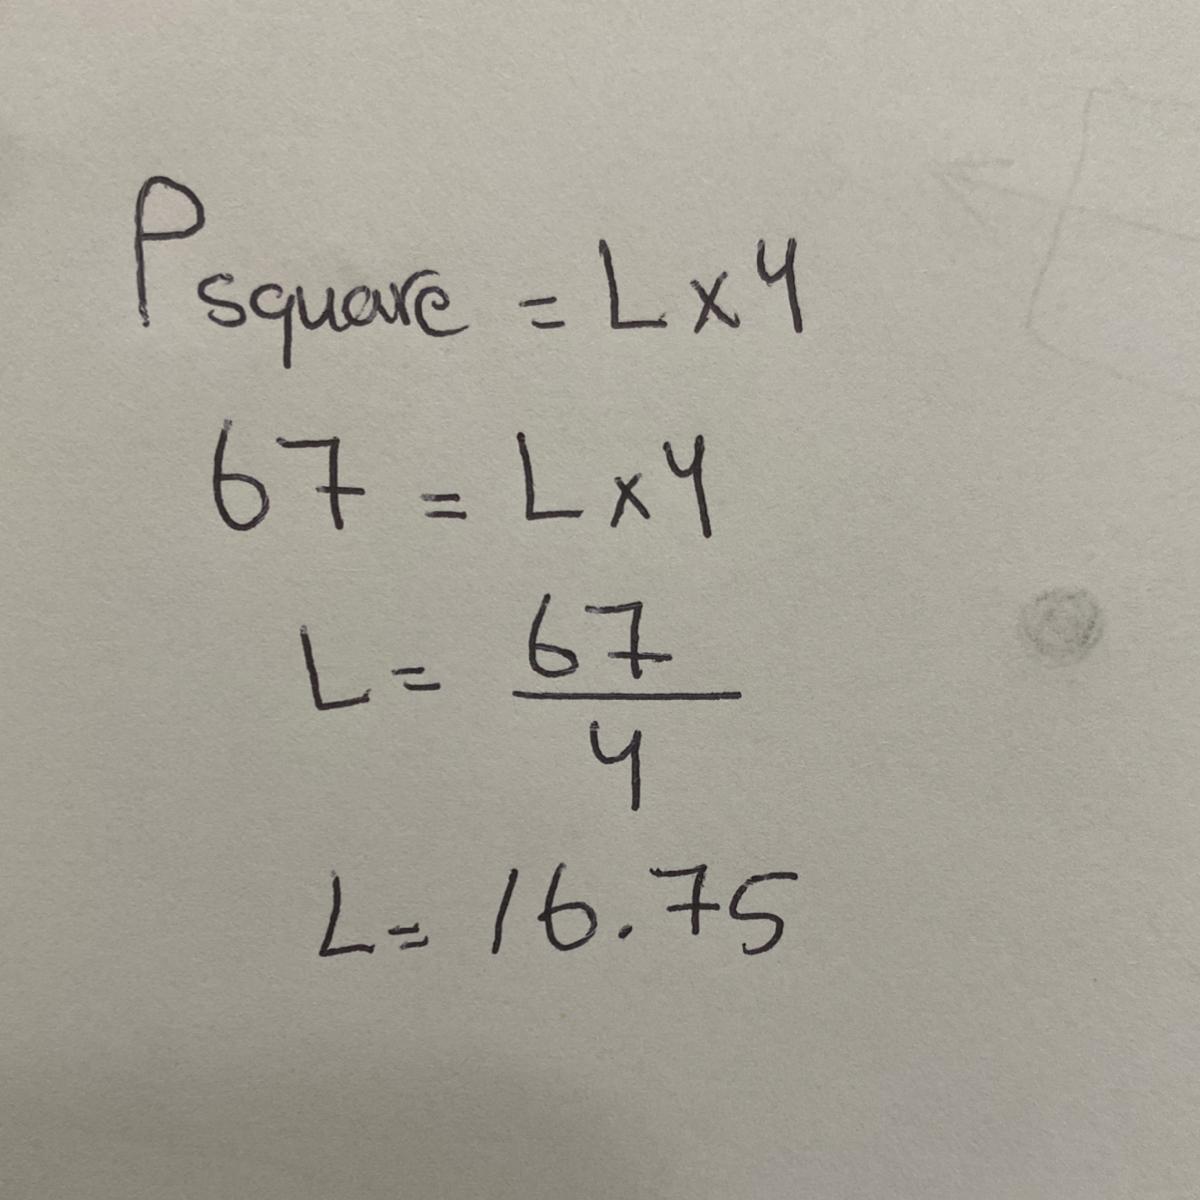 P square = L x 4
67 = L x 4
L = 67/4
L = 16.75